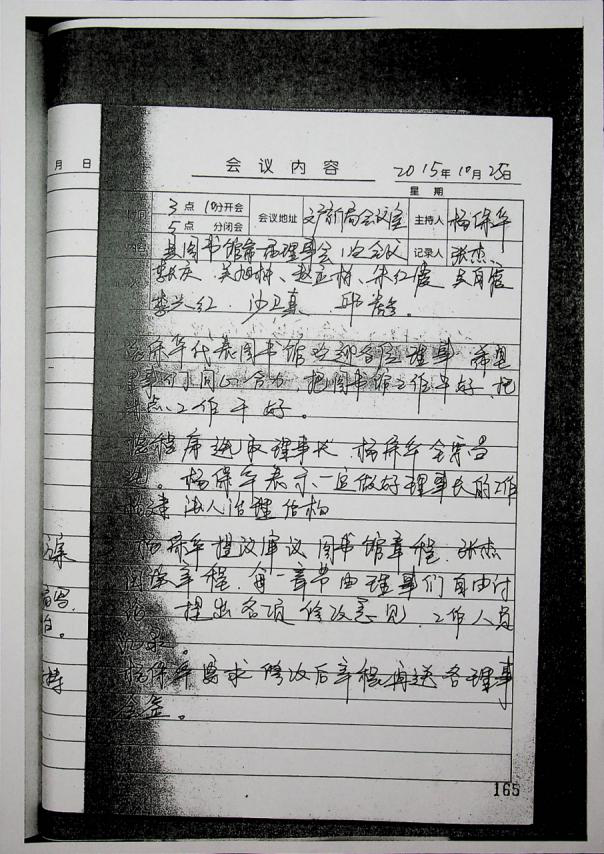 月 日
会议内容 2015年10月28日
星期
3点10分开会
5点 分闭会
会议地址 文广新局会议室 主持人 杨保华
县图书馆第一届理事会1次会议 记录人 张杰
李长庆、吴旭林、赵 朱红霞
李兴红、沙卫真、邱
杨保华代表图书馆欢迎各位理事 希望
理事们共同 合力,把图书馆工作干好、把
工作干好。
按程序选取理事长,杨保华全票当
选。杨保华表示一定做好理事长的工作
构建法人治理结构
杨保华提议审议图书馆章程。张杰
章程,每一章节由理事们自由讨
论,提出各项修改意见,工作人员
记录。
杨保华要求修改后章程再送各理事
会签。
165